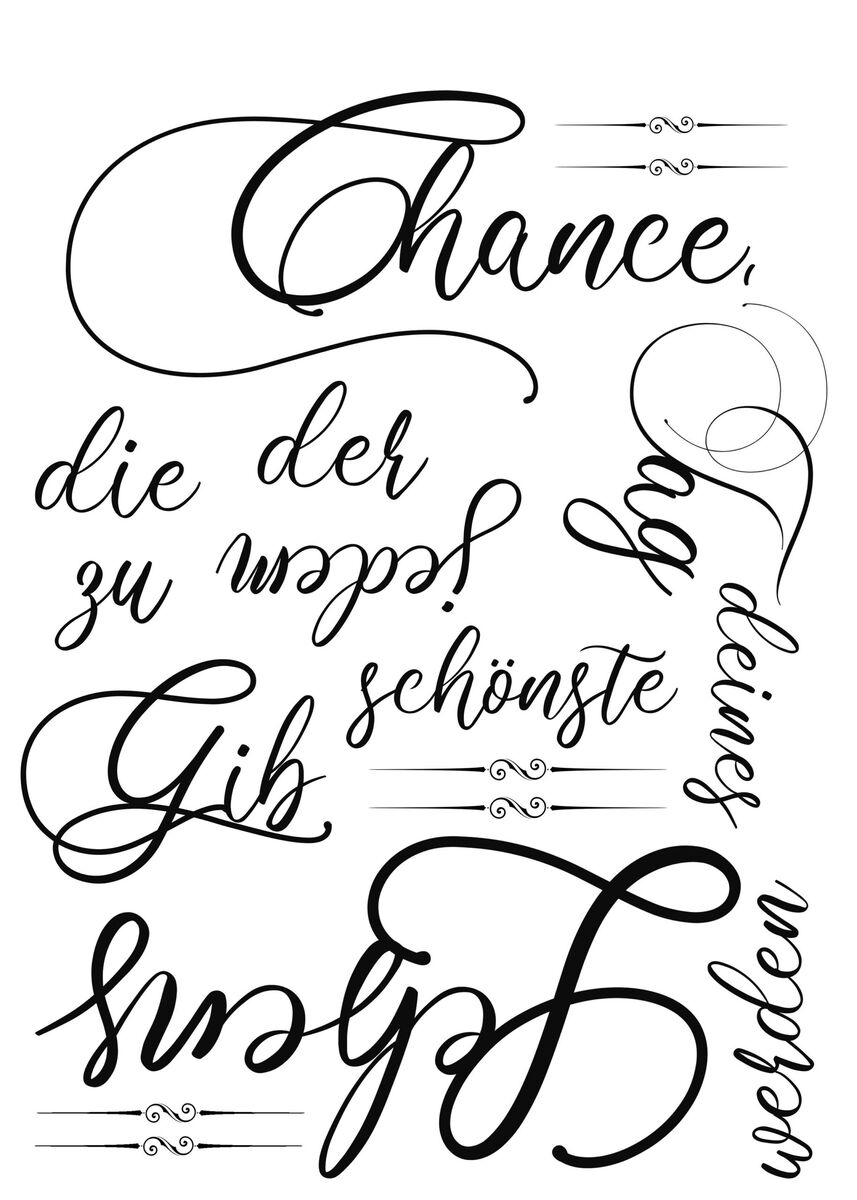 Chance,
die
der
Tag
zu
jedem
deines
schönste
Gib
werden
Lebens